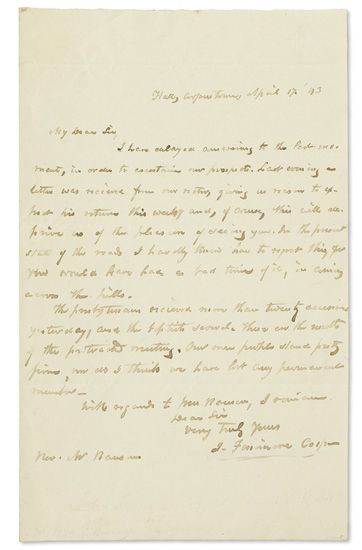 Hall, Cooperstown, April 17th '43
My Dear Sir,
I have delayed answering to the last mo-
ment, in order to ascertain our prospects. Last evening a
letter was received from our rector, giving us reason to ex-
pect his return this week, and, of course, this will de-
prive us of the pleasure of seeing you. In the present
state of the roads I hardly know how to regret this, for
you would have had a bad time of it, in coming
across the hills.
The presbyterians received more than twenty accessions
yesterday, and the baptists several. These are the results
of the protracted meeting. Our own people stand pretty
firm, nor do I think we have lost any permanent
member—
With regards to Mrs I remain
Dear Sir
Very truly Yours
J. Fenimore Cooper
Rev. Mr